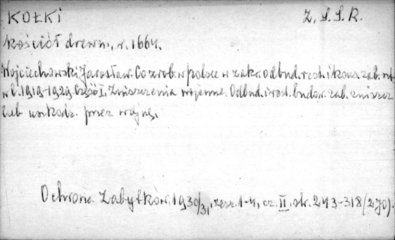 KOŁKI Z.S.S.R.
kościół drewn., r. 1664.
Wojciechowski Jarosław. Co zrob. w Polsce w zakr. odbud. rest. i kons. zab. szt.
w l. 1919-1929. Część I. Zniszczenia wojenne. Odbud. i rest. budow. zab. zniszcz.
lub uszkodz. przez wojnę.
Ochrona Zabytków. 1930/31, zesz. 1-4, cz. II. str. 243-318 (270).